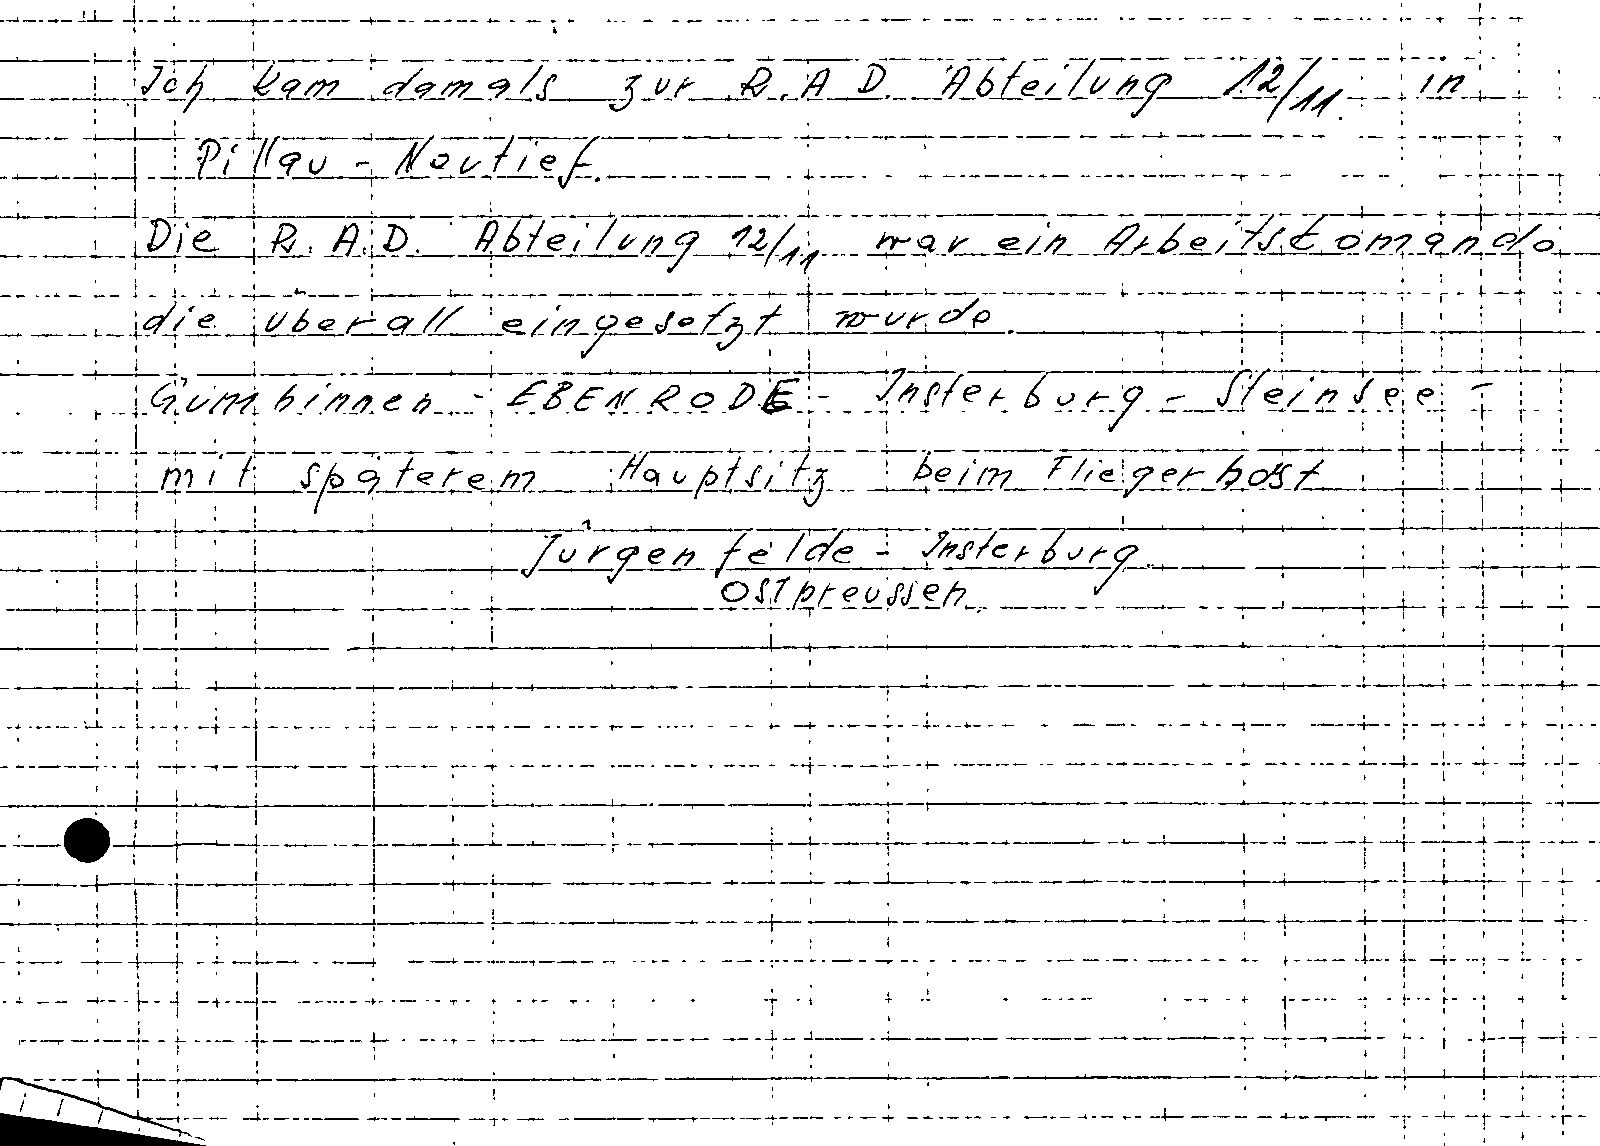 Ich kam damals zur R.A.D. Abteilung 12/11. in
Pillau - Neutief.
Die R.A.D. Abteilung 12/11 war ein Arbeitskomando
die überall eingesetzt wurde.
Gumbinnen - EBENRODE - Insterburg - Steinsee -
mit späterem Hauptsitz beim Fliegerhorst
Jürgenfelde - Insterburg.
Ostpreussen.